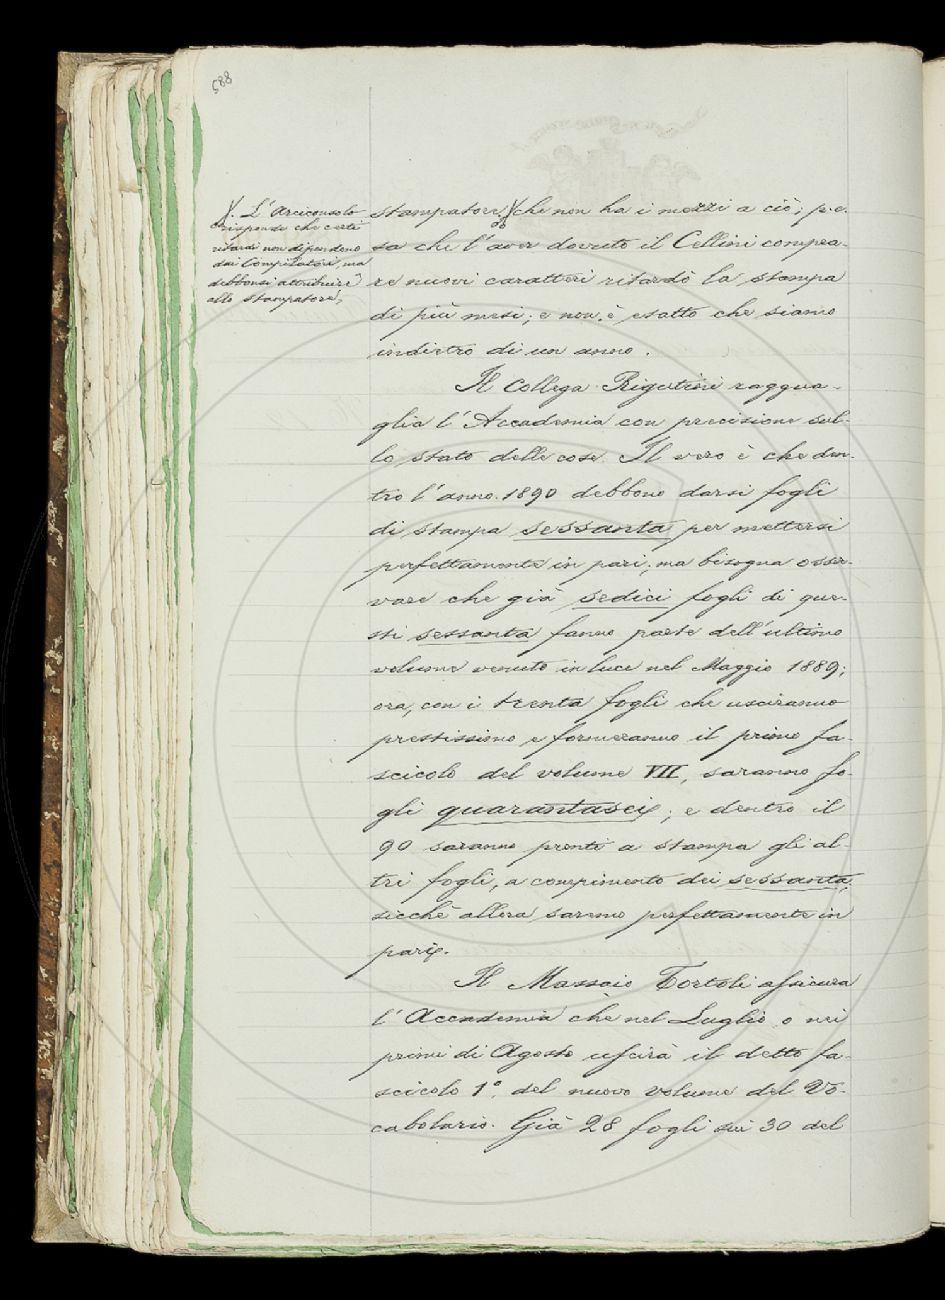 588
χ. L'Arciconsolo
risponde che certi
ritardi non dipendono
dai Compilatori, ma
debbonsi attribuire
allo Stampatore,
stampatore, χ che non ha i mezzi a ciò; pe
sa che l'aver dovuto il Cellini compra-
re nuovi caratteri ritardò la stampa
di più mesi; e non è esatto che siamo
indietro di un anno.
Il Collega Rigutini raggua-
glia l'Accademia con precisione sul-
lo stato delle cose. Il vero è che den-
tro l'anno 1890 debbono darsi fogli
di stampa sessanta per mettersi
perfettamente in pari; ma bisogna osser-
vare che già sedici fogli di que-
sti sessanta fanno parte dell'ultimo
volume venuto in luce nel Maggio 1889;
ora, con i trenta fogli che usciranno
prestissimo e formeranno il primo fa-
scicolo del volume VII, saranno fo-
gli quarantasei; e dentro il
90 saranno pronti a stampa gli al-
tri fogli, a compimento dei sessanta,
sicchè allora saremo perfettamente in
pari.
Il Massaio Tortoli assicura
l'Accademia che nel Luglio o nei
primi di Agosto uscirà il detto fa-
scicolo 1º. del nuovo volume del Vo-
cabolario. Già 28 fogli sui 30 del